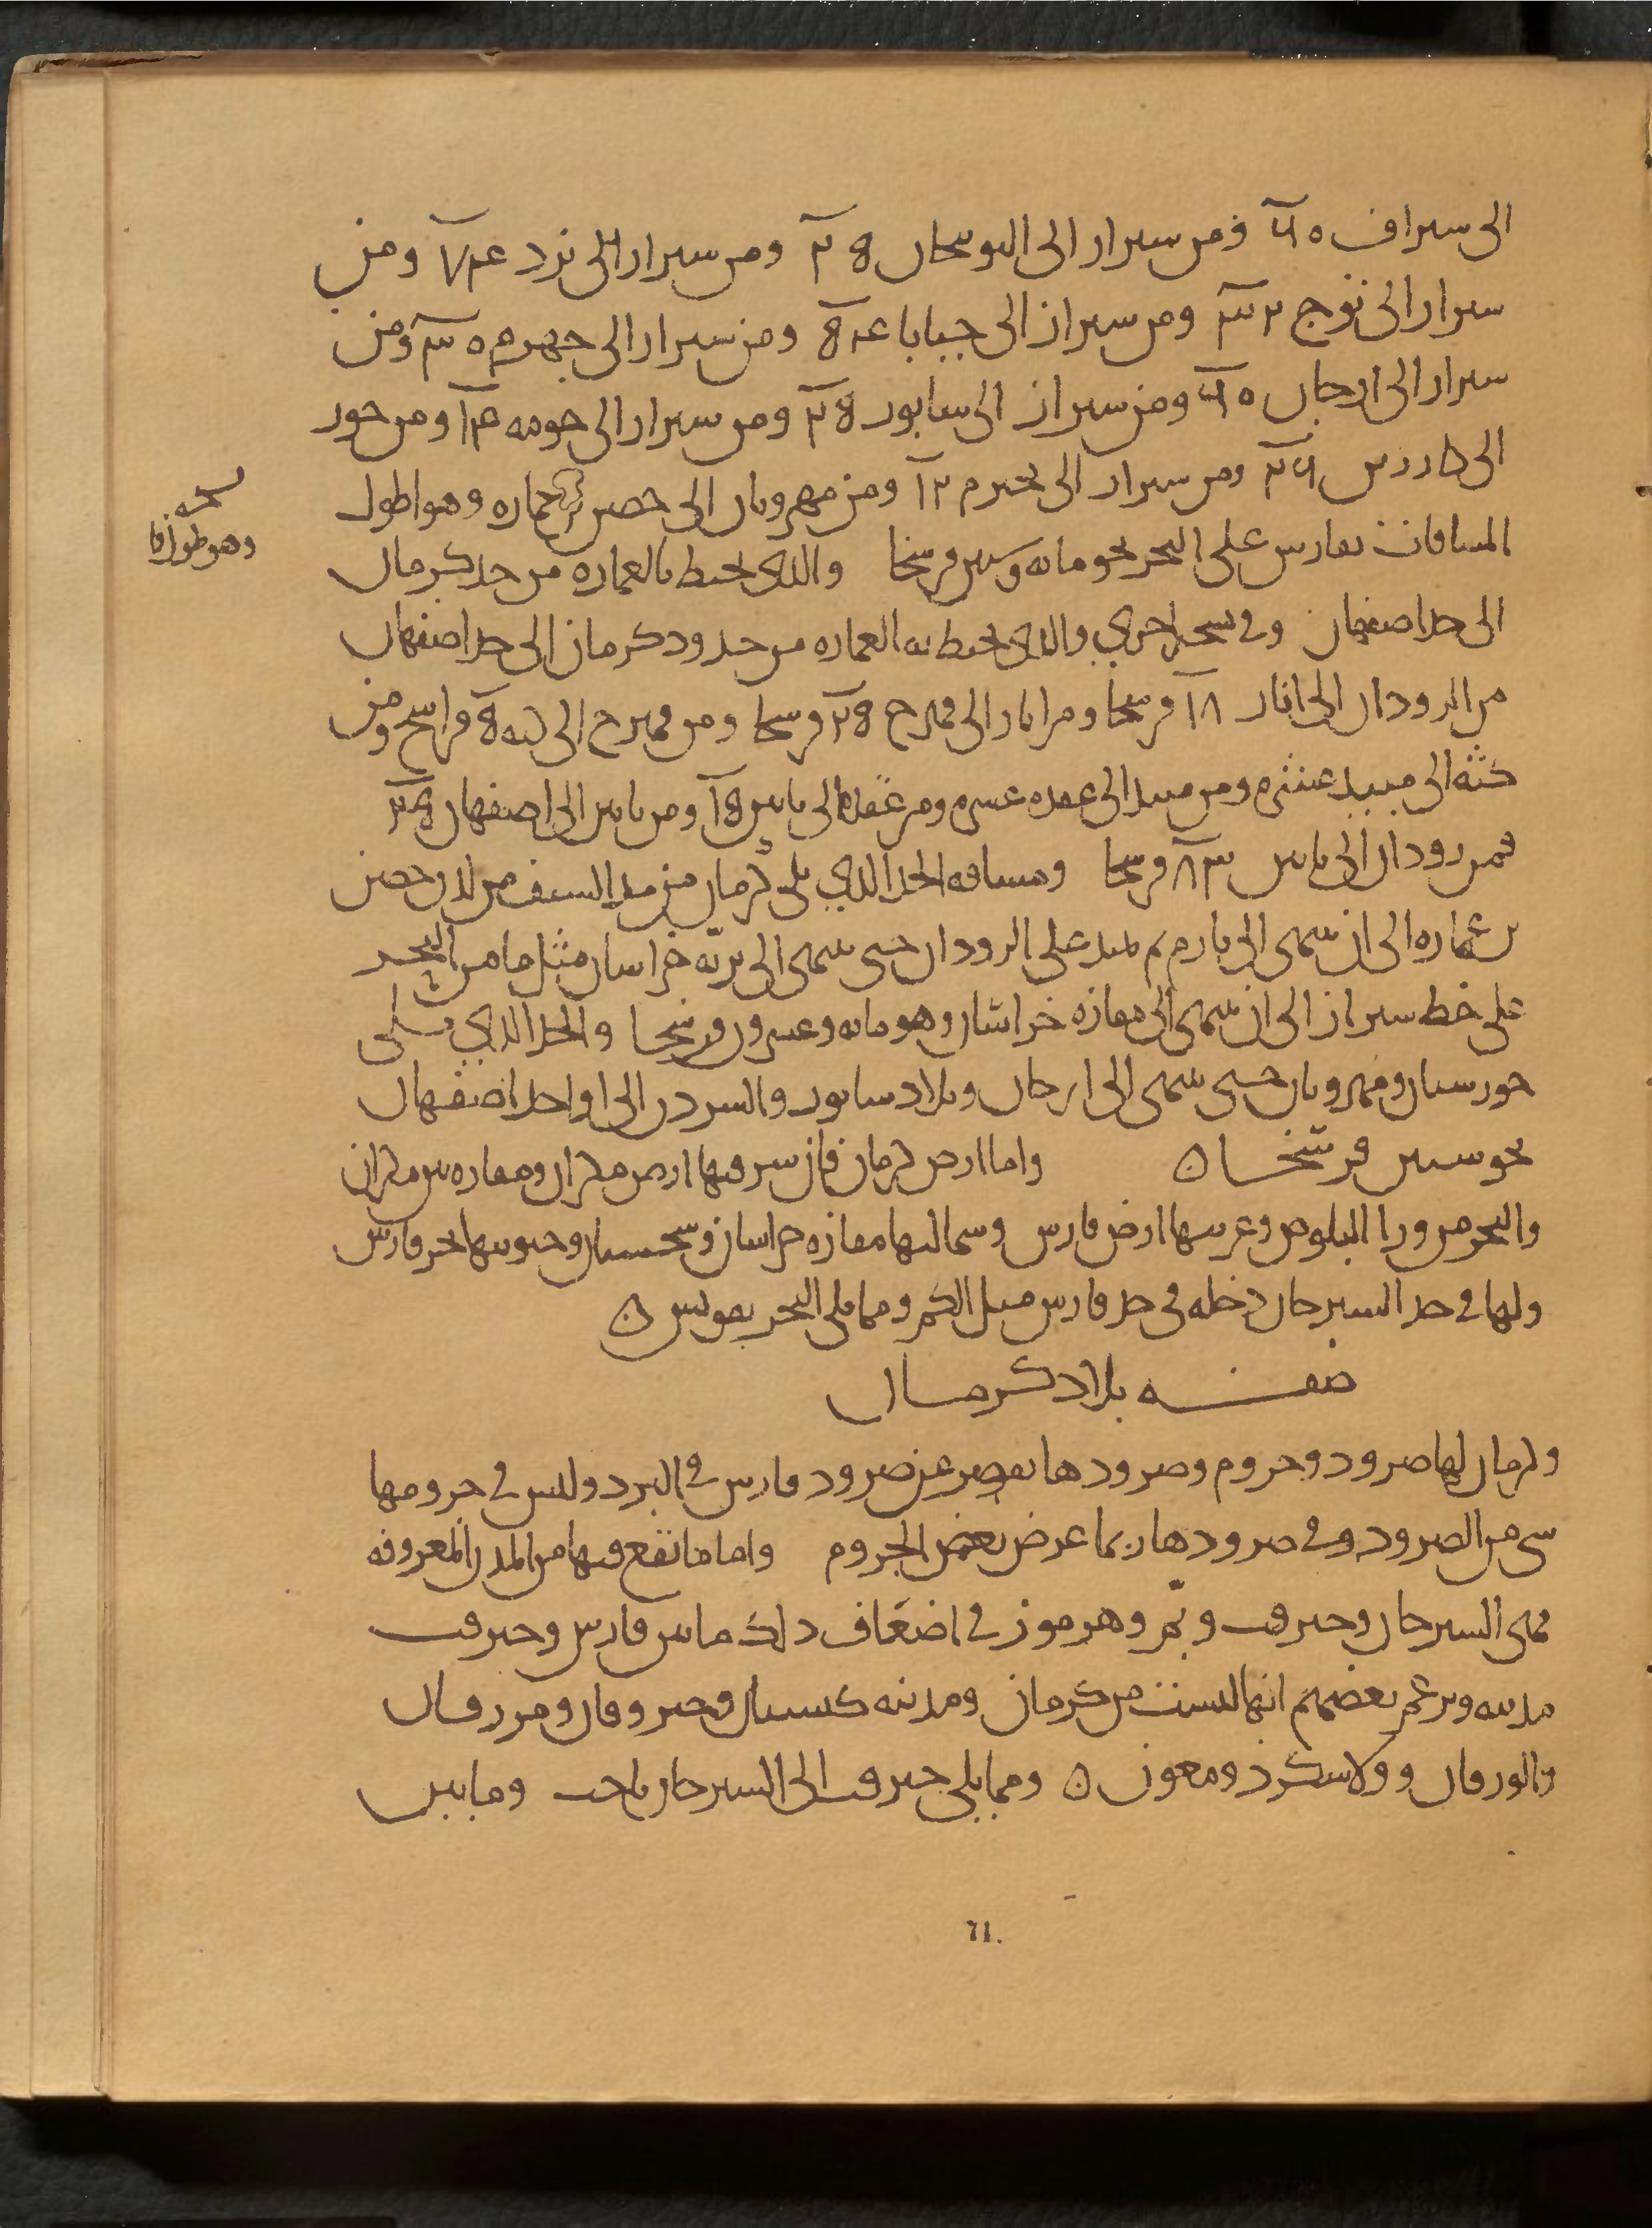 الى سيراف ٦٠ ومن سيراز الى النوبنجان ٢٥ ومن سيراز الى يزد ٧٤ ومن
سيراز الى توج ٣٢ ومن سيراز الى جنابا ٥٤ ومن سيراز الى جهرم ٣٠ ومن
سيراز الى ارجان ٦٠ ومن سيراز الى سابور ٢٥ ومن سيراز الى جومه ١٤ ومن جور
الى كازرين ومن سيراز الى بحيرم ١٢ ومن مهروبان الى حصن بن عماره وهو اطول
المسافات بفارس على البحر نحو مايه وستين فرسخا والذى يحيط بالعماره من حد كرمان
الى حد اصفهان وفي نسخه اخري والذى يحيط به العماره من حدود كرمان الى حد اصفهان
من الرودان الى انار ١٨ فرسخا ومن انار الى فهرج ٢٥ فرسخا ومن فهرج الى كثه ٥ فراسخ ومن
كثه الى ميبد عشره ومن ميبد الى عقده عشره ومن عقده الى نايين ١٥ ومن نايين الى اصفهان ٤٥
فمن رودان الى نايين ٨٣ فرسخا ومسافه الحد الذي يلي كرمان من حد السيف من لدن حصن
بن عماره الى ان ينتهى الى تارم ثم يمتد على الرودان حتى ينتهى الى بريّه خراسان مثل ما من البحر
على خط سيراز الى ان ينتهى الى مفازه خراسان وهو مايه وعشرون فرسخا والحد الذي يلي
خورستان ومهروبان حتى ينتهى الى ارجان وبلاد سابور والسردن الى اول حد اصفهان
نحو ستين فرسخا ن واما ارض كرمان فان شرقيها ارض مكران ومفازه بين مكران
والبحر من ورا البلوص وغربيها ارض فارس وشماليها مفازه خراسان وسجستان وجنوبيها بحر فارس
ولها في حد السيرجان دخله في حد فارس مثل الكم ومما يلي البحر بقويس ن
صفه بلاد كرمان
وكرمان لها صرود وجروم وصرودها يقصر عن صرود فارس في البرد وليس في جرومها
شى من الصرود وفي صرودها ربما عرض بعض الجروم واما ما تقع فيها من المدن المعروفه
فهى السيرجان وجيرفت وبمّ وهرموز في اضعاف ذلك ما بين فارس وجيرفت
مدينه ويزعم بعضهم انها ليست من كرمان ومدينه كشستان وجيروقان ومررقان
والورقان وولاسكرد ومعون ن ومما يلي جيرفت الى السيرجان ناجت وما بين
نسخه
وهو طول
71.